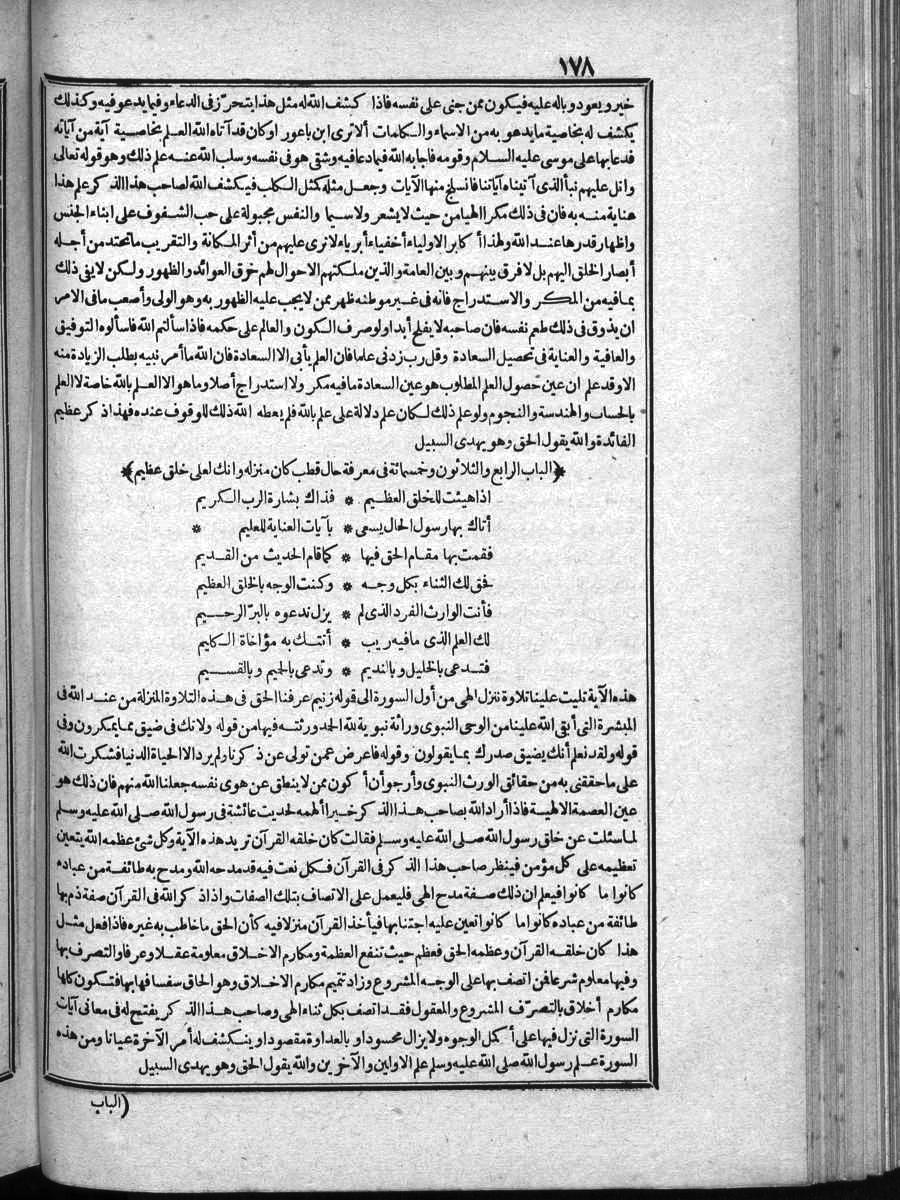 ١٧٨
خير ويعود وباله عليه فيكون ممن جنى على نفسه فاذا كشف الله له مثل هذا يتحرّز فى الدعاء وفيما يدعو فيه وكذلك
يكشف له بخاصية ما يدعو به من الاسماء والكلمات ألا ترى ابن باعورا وكان قد آتاه الله العلم بخاصية آية من آياته
فدعا بها على موسى عليه السلام وقومه فاجابه الله فيما دعا فيه وشقى هو فى نفسه وسلب الله عنه علم ذلك وهو قوله تعالى
واتل عليهم نبأ الذى آتيناه آياتنا فانسلخ منها الآيات وجعل مثله كمثل الكلب فيكشف الله لصاحب هذا الذكر علم هذا
عناية منه به فان فى ذلك مكرا الهيا من حيث لا يشعر ولا سيما والنفس مجبولة على حب الشفوف على ابناء الجنس
واظهار قدرها عند الله ولهذا أكابر الاولياء أخفياء أبرياء لا ترى عليهم من أثر المكانة والتقريب ما تحتد من أجله
أبصار الخلق اليهم بل لا فرق بينهم وبين العامة والذين ملكتهم الاحوال لهم خرق العوائد والظهور ولكن لا يفى ذلك
بما فيه من المكر والاستدراج فانه فى غير موطنه ظهر ممن لا يجب عليه الظهور به وهو الولى وأصعب ما فى الامر
ان يذوق فى ذلك طعم نفسه فان صاحبه لا يفلح أبدا ولو صرف الكون والعالم على حكمه فاذا سألتم الله فاسألوه التوفيق
والعافية والعناية فى تحصيل السعادة وقل رب زدنى علما فان العلم يأبى الا السعادة فان الله ما أمر نبيه بطلب الزيادة منه
الا وقد علم ان عين حصول العلم المطلوب هو عين السعادة ما فيه مكر ولا استدراج أصلا وما هو الا العلم بالله خاصة لا العلم
بالحساب والهندسة والنجوم ولو علم ذلك لكان علم دلالة على علم بالله فلم يعطه الله ذلك للوقوف عنده فهذا ذكر عظيم
الفائدة والله يقول الحق وهو يهدى السبيل
﴿الباب الرابع والثلاثون وخمسمائة فى معرفة حال قطب كان منزله وانك لعلى خلق عظيم﴾
اذا هيئت للخلق العظيم * فذاك بشارة الرب الكريم
أتاك بها رسول الحال يسعى * بآيات العناية للعليم *
فقمت بها مقام الحق فيها * كما قام الحديث من القديم
فحق لك الثناء بكل وجه * وكنت الوجه بالخلق العظيم
فأنت الوارث الفرد الذى لم * يزل ندعوه بالبرّ الرحيم
لك العلم الذى ما فيه ريب * أتتك به مؤاخاة الكليم
فتدعى بالخليل وبالنديم * وتدعى بالجيم وبالقسيم
هذه الآية تليت علينا تلاوة تنزل الهى من أول السورة الى قوله زنيم عرفنا الحق فى هذه التلاوة المنزلة من عند الله فى
المبشرة التى أبقى الله علينا من الوحى النبوى وراثة نبوية لله الحمد ورثته فيها من قوله ولا تك فى ضيق مما يمكرون وفى
قوله ولقد نعلم أنك يضيق صدرك بما يقولون وقوله فاعرض عمن تولى عن ذكرنا ولم يرد الا الحياة الدنيا فشكرت الله
على ما حققنى به من حقائق الورث النبوى وأرجو أن أكون ممن لا ينطق عن هوى نفسه جعلنا الله منهم فان ذلك هو
عين العصمة الالهية فاذا أراد الله بصاحب هذا الذكر خيرا ألهمه لحديث عائشة فى رسول الله صلى الله عليه وسلم
لما سئلت عن خلق رسول الله صلى الله عليه وسلم فقالت كان خلقه القرآن تريد هذه الآية وكل شئ عظمه الله يتعين
تعظيمه على كل مؤمن فينظر صاحب هذا الذكر فى القرآن فكل نعت فيه قد مدحه الله ومدح به طائفة من عباده
كانوا ما كانوا فيعلم ان ذلك صفة مدح الهى فليعمل على الاتصاف بتلك الصفات واذا ذكر الله فى القرآن صفة ذم بها
طائفة من عباده كانوا ما كانوا تعين عليه اجتنابها فيأخذ القرآن منزلا فيه كأن الحق ما خاطب به غيره فاذا فعل مثل
هذا كان خلقه القرآن وعظمه الحق فعظم حيث تنفع العظمة ومكارم الاخلاق معلومة عقلا وعرفا والتصرف بها
وفيها معلوم شرعا فمن اتصف بها على الوجه المشروع وزاد تتميم مكارم الاخلاق وهو الحاق سفسافها بها فتكون كلها
مكارم أخلاق بالتصرّف المشروع والمعقول فقد اتصف بكل ثناء الهى وصاحب هذا الذكر يفتح له فى معانى آيات
السورة التى نزل فيها على أكمل الوجوه ولا يزال محسودا وبالعداوة مقصودا وينكشف له أمر الآخرة عيانا ومن هذه
السورة علم رسول الله صلى الله عليه وسلم علم الاولين والآخرين والله يقول الحق وهو يهدى السبيل
(الباب